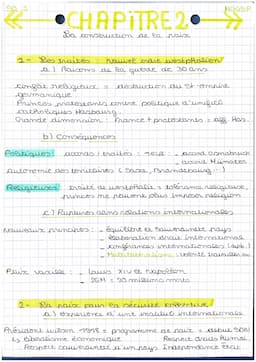 CHAPITRE 2
La construction de la paix
1 - Les traités : nouvel ordre westphalien
a) Raisons de la guerre de 30 ans
conflit religieux = destruction du St-empire
germanique
Princes protestants contre politique d'unifié
catholiques Habsbourg.
Grande dimension : France + protestants = aff. Has.
b) Conséquences
Politiques : accords / traités : -
accord Osnabrück
- accord Münster
Autonomie des territoires ( Saxe, Brandebourg...)
Religieuses : traité de westphalie = tolérance religieuse,
princes ne peuvent plus imposer religion
c) Ruptures dans relations internationales
Nouveaux principes : - équilibre et souveraineté pays
- élaboration droit international
- conférences internationales
- Multilatéralisme :
Paix varsible : - Louis XIV et Napoléon
- 2GM = 50 millions morts
2 - La paix par la sécurité collective
a) expérience d'une institut internationale
Président Wilson -1918 = programme de paix = début SDN
↳ libéralisme économique Respect droits
Respect souveraineté d'un pays Indépendance état